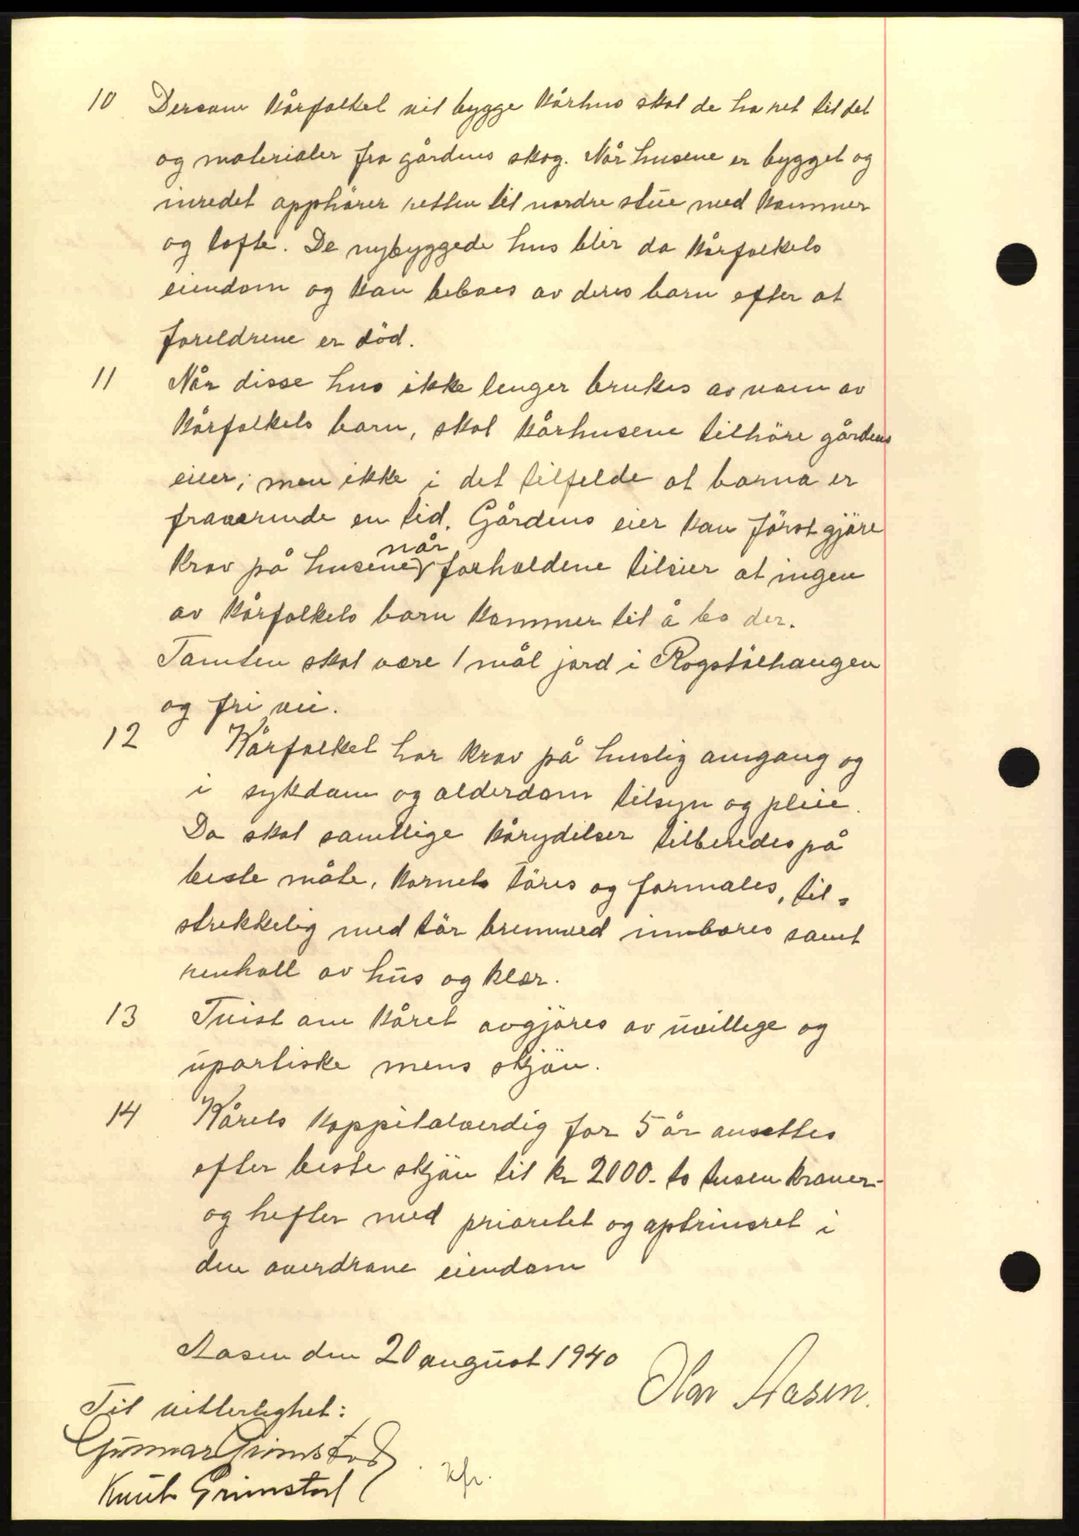 10 Dersom kårfolket vil bygge kårhus skal de ha ret til det
og materialer fra gårdens skog. Når husene er bygget og
inredet opphører retten til nordre stue med kammer
og lofte. De nybyggede hus blir da kårfolkets
eiendom og kan beboes av deres barn efter at
foreldrene er död.
11 Når disse hus ikke lenger brukes av noen av
kårfolkets barn, skal kårhusene tilhöre gårdens
eier; men ikke i det tilfelde at barna er
fraværende en tid. Gårdens eier kan först gjöre
krav på husene når forholdene tilsier at ingen
av kårfolkets barn kommer til å bo der.
Tomten skal være 1 mål jord i Rogstölhaugen
og fri vei.
12 Kårfolket har krav på huslig omgang og
i sykdom og alderdom tilsyn og pleie.
Da skal samtlige kårydelser tilberedes på
beste måte, kornet töres og formales, til-
strekkelig med tör brenved innbæres samt
renhold av hus og klær.
13 Tvist om kåret avgjöres av uvillige og
upartiske mens skjön.
14 Kårets kappitalverdig for 5 år ansettes
efter beste skjön til kr 2000- to tusen kroner-
og hefter med prioritet og optrinsret i
den overdrane eiendom
Aasen den 20 august 1940
Olav Aasen.
Til vitterlighet:
Gunnar Grimstad
Knut Grimstad